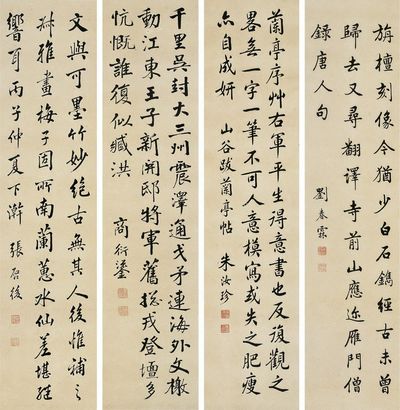 旃檀刻像今猶少白石鐫經古未曾
歸去又尋翻譯寺前山應雁門僧
錄唐人句 劉春霖
蘭亭序艸右軍平生得意書也反復觀之
畧無一字一筆不可人意模寫或失之肥瘦
亦自成妍 山谷跋蘭亭帖 朱汝珍
千里吳封大三州震澤通戈矛連海外文檄
動江東王子新開邸將軍舊總戎登壇多
忼慨誰復似臧洪 商衍鎏
文與可墨竹妙絕古無其人後惟補之
叔雅畫梅子固所南蘭蕙水仙差堪繼
響耳丙子仲夏下澣 張啓後